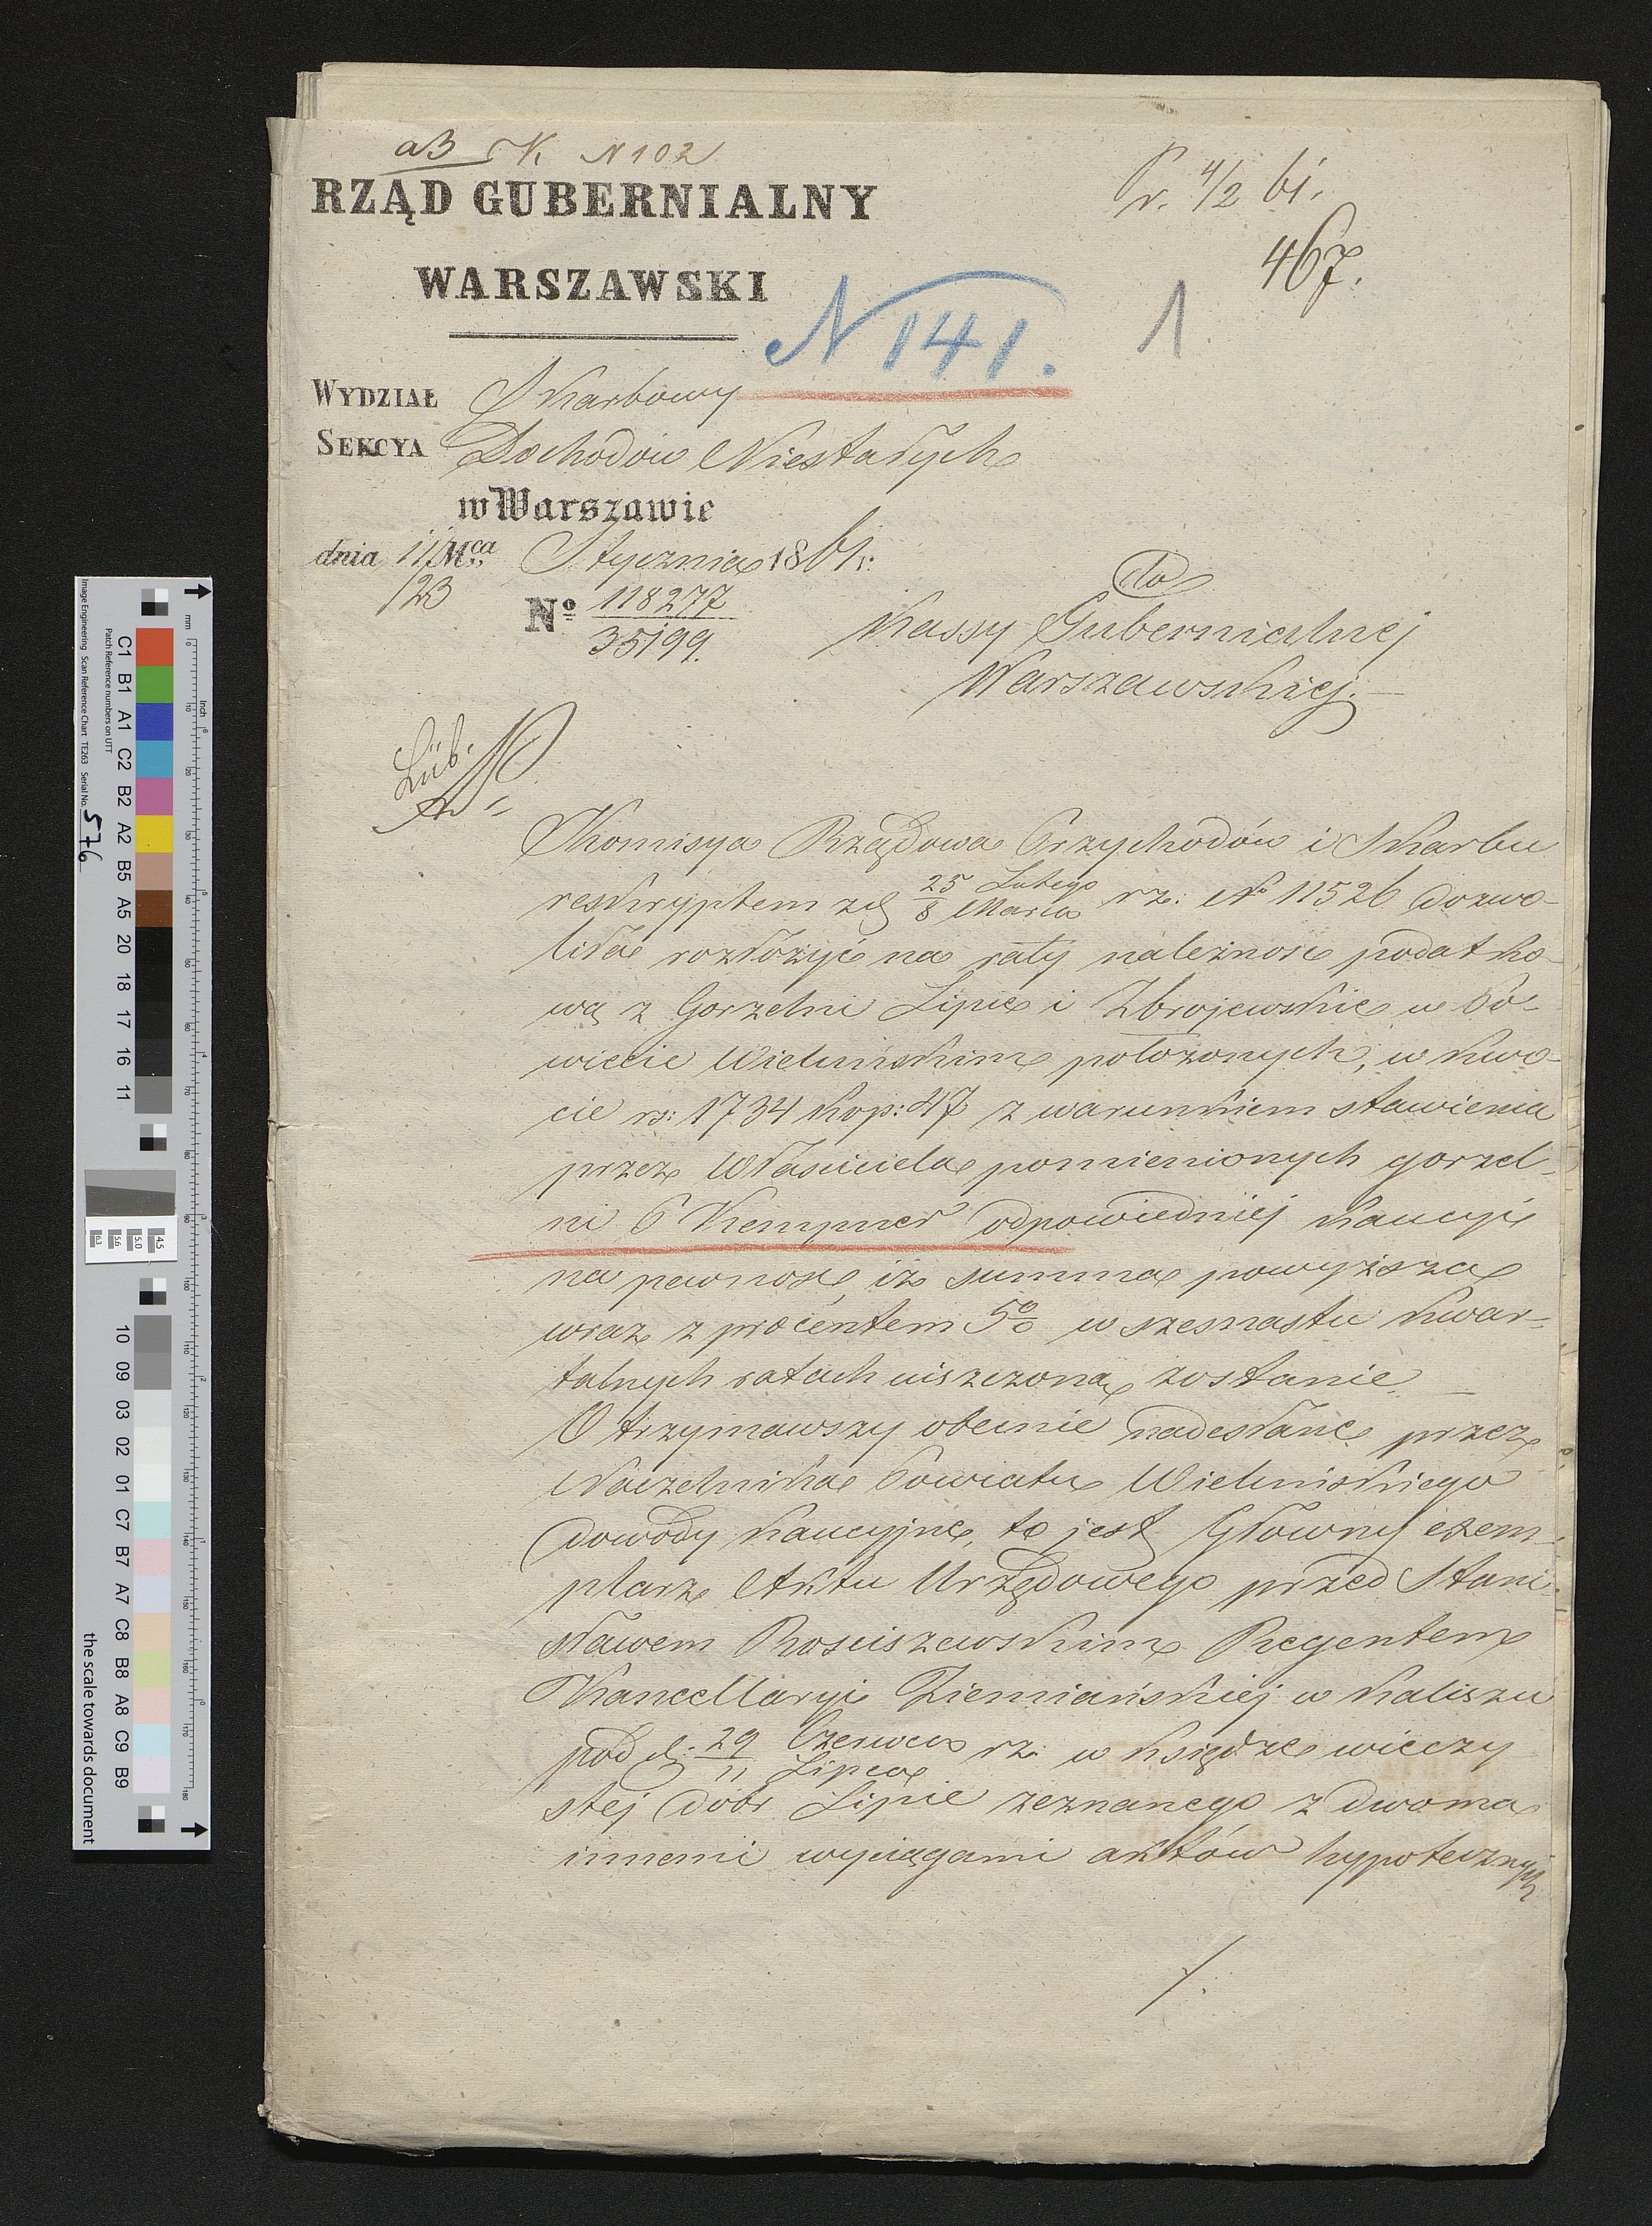 N 102
RZĄD GUBERNIALNY
WARSZAWSKI
Pr. 4/2 61.
467.
N 141.
1
WYDZIAŁ Skarbowy
SEKCYA Dochodów Niestałych
w Warszawie
dnia 11/23 Mca Stycznia 1861 r.
No 118277
35199.
do
Kassy Gubernialnej
Warszawskiej.
Kommisya Rządowa Przychodów i Skarbu
reskryptem z d 25 Lutego / 8 Marca r z: No 11526 dozwo-
liła rozłożyć na raty należność podatko-
wą z Gorzelni Lipie i Zbrojewskie w Po-
wiecie Wieluńskim położonych, w kwo-
cie rs: 1734 kop: 47 z warunkiem stawienia
przez Właściciela pomienionych gorzel-
ni P Kempner odpowiedniej kaucyi
na pewność, iż summa powyższa
wraz z procentem 5% w szesnastu kwar-
talnych ratach uiszczoną zostanie
Otrzymawszy obecnie nadesłane przez
Naczelnika Powiatu Wieluńskiego
dowody kaucyjne, to jest Główny exem-
plarz Aktu Urzędowego przed Stani-
sławem Rościszewskim Regentem
Kancellaryi Ziemiańskiej w Kaliszu
pod d: 29 Czerwca / 11 Lipca r z: w księdze wieczy
stej dóbr Lipie zeznanego z dwoma
innemi wyciągami aktów hypotecznych
/.
576